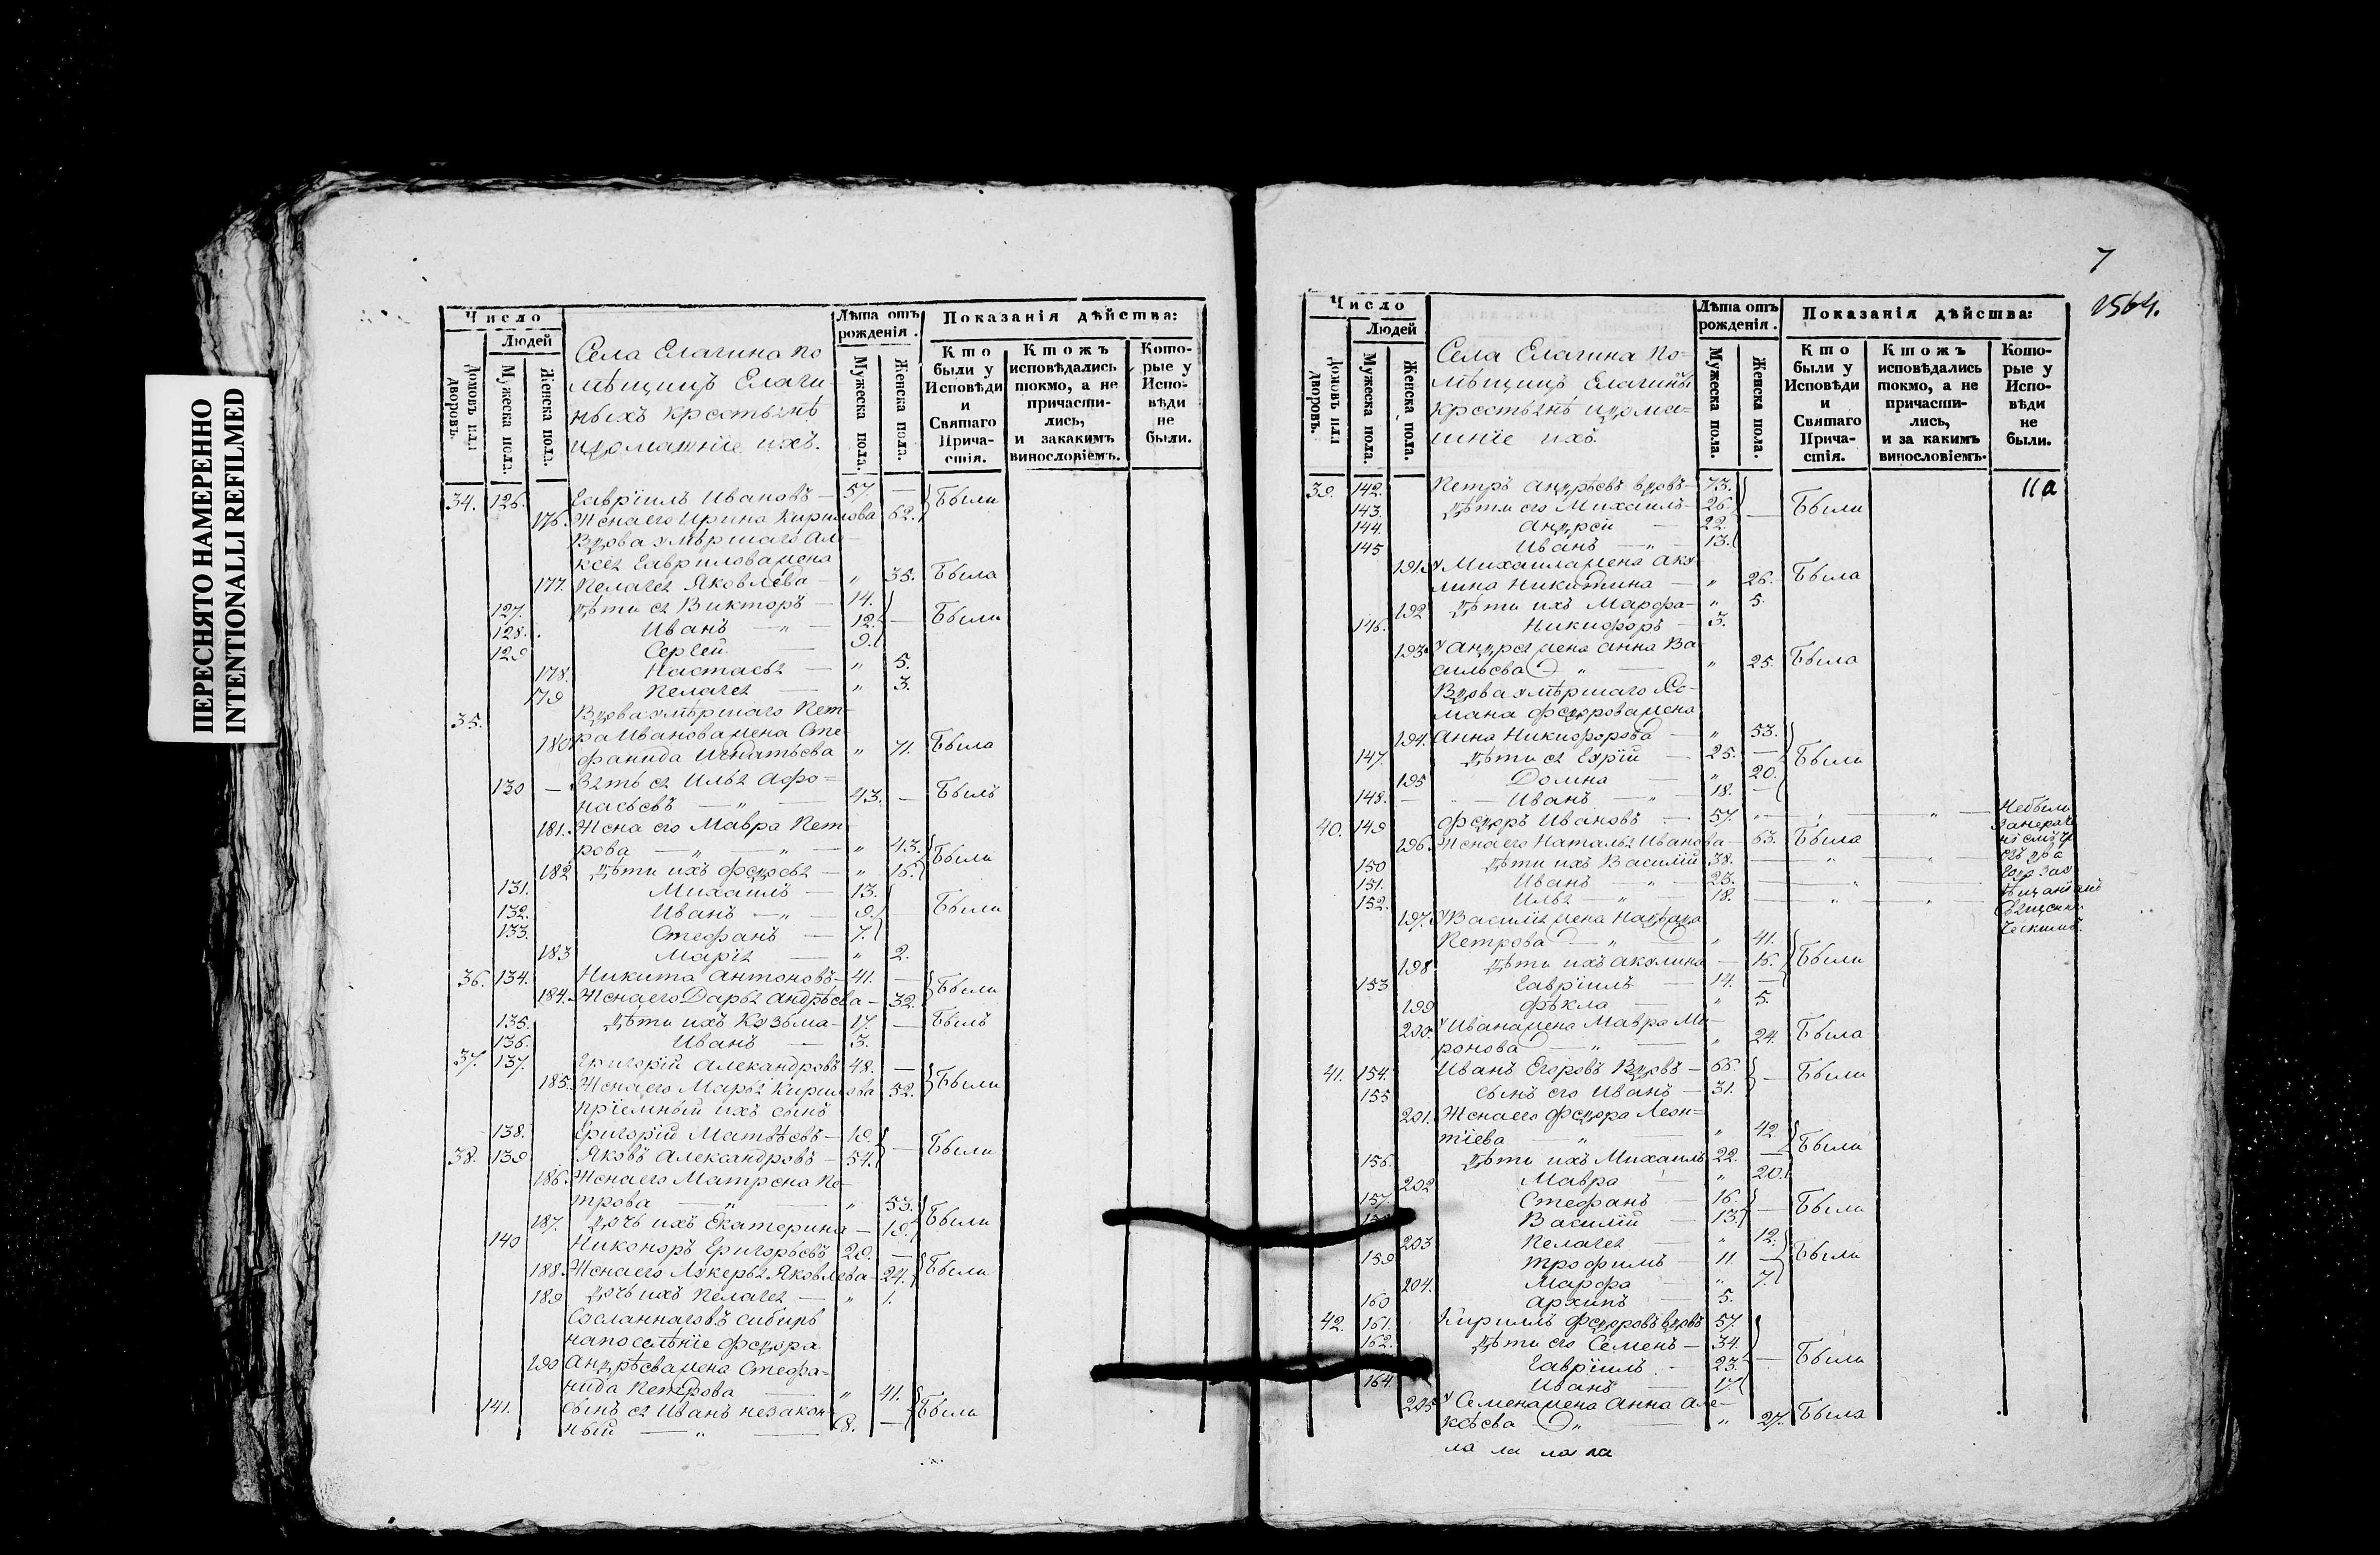 ПЕРЕСНЯТО НАМЕРЕННО
INTENTIONALLI REFILMED
Число
Людей
Домовъ или дворовъ.
Мужеска пола.
Женска пола.
Села Елагина по
мѣщицъ Елаги
ныхъ крестьянѣ
идомашніе ихъ.
Лѣта отъ рожденія.
Мужеска пола.
Женска пола.
Показанія дѣйства:
Кто были у Исповѣди и Святаго Причастія.
Ктожъ исповѣдались токмо, а не причастились, и закакимъ винословіемъ.
Которые у Исповѣди не были.
34. 126. Гавріилъ Ивановъ — 57. — Были
176. Жена его Ирина Кирилова 62.
Вдова умѣршаго Але
ксея Гаврилова жена
177. Пелагея Яковлева — „ 35. Была
127. Дѣти ея Викторъ — 14.
128. Иванъ — „ — 12. — Были
129 Сергей — 9.
178. Настасья — „ 5.
179 Пелагея — „ 3.
35. Вдова умѣршаго Пет-
180 ра Иванова жена Сте
фанида Игнатьева „ 71. Была
130 — Зять ея Илья Афо=
насьевъ — „ — 43. — Былъ
181. Жена его Мавра Пет
рова — „ — „ — „ 43. Были
182 Дѣти ихъ Федосья — „ 15.
131. Михаилъ — 13.
132. Иванъ — „ — 9. Были
133. Стефанъ — 7.
183 Марія — „ 2.
36. 134. Никита Антоновъ — 41. — Были
184. Жена его Дарья Андрѣева — 32.
135. Дѣти ихъ Кузьма — 17. — Былъ
136. Иванъ — 3.
37. 137. Григорій Александровъ 48. — Были
185. Жена его Марья Кирилова 52.
Пріемный ихъ сынъ
138. Григорій Матвѣевъ — 19. — Были
38. 139 Яковъ Александровъ — 54.
186. Жена его Матрена Пе
трова — „ — „ 53. Были
187. Дочь ихъ Екатерина — 19.
140 Никоноръ Григорьевъ 29. — Были
188. Жена его Лукерья Яковлева 24.
189 Дочь ихъ Пелагея — „ 1.
Сосланнаговъ сибирь
напоселѣніе Федора
190 Андрѣева жена Стефа-
нида Петрова — „ 41. Были
141. Сынъ ея Иванъ незакон
ный — „ — 8. —
7
1564.
Число
Людей
Домовъ или дворовъ.
Мужеска пола.
Женска пола.
Села Елагина По-
мѣщицъ Елагины
крестьянѣ идома=
шніе ихъ.
Лѣта отъ рожденія.
Мужеска пола.
Женска пола.
Показанія дѣйства:
Кто были у Исповѣди и Святаго Причастія.
Ктожъ исповѣдались токмо, а не причастились, и за какимъ винословіемъ.
Которые у Исповѣди не были.
11а
39. 142. Петръ Андрѣевъ вдовъ — 73.
143. Дѣти его Михаилъ — 26. — Были
144. Андрей — 22.
145 Иванъ — „ — 13.
191. у Михаила жена Аку
лина Никитина — „ 26. Была
192 Дѣти ихъ Марфа — „ 5.
146. Никифоръ — 3.
193 у Андрея жена Анна Ва
сильева „ — „ 25. Была
Вдова умѣршаго Ро-
мана Федорова жена
194. Анна Никифорова — „ 53.
147. Дѣти ея Гурій — 25. — Были
195 Домна — „ 20.
148. — Иванъ — „ 18. —
40. 149 Федоръ Ивановъ — 57. „ — Небыли
196. Жена его Наталья Иванова — 63. Была
150 Дѣти ихъ Василій 38.
151. Иванъ — „ — 23.
152. Илья — „ — 18.
197. у Василія жена
Петрова — „ — „ 41. Были
198 Дѣти ихъ Акулина — 15.
153 Гавріилъ — 14. —
199 Фѣкла — „ 5.
200. у Ивана жена Мавра Ми-
ронова — „ — „ 24. Была
41. 154. Иванъ Егоровъ Вдовъ — 66. — Были
155 Сынъ его Иванъ — 31.
201. Жена его Федора Леон=
тіева — „ — „ 42. Были
156. Дѣти ихъ Михаилъ 22. —
202 Мавра — „ 20.
157. Стефанъ — 16. — Были
Василій — 13.
203 Пелагея — „ 12. Были
159 Трофимъ — 11 —
204. Марфа — „ 7.
160 Архипъ — 5.
42. 161. Кирилъ Федоровъ вдовъ 57.
162. Дѣти его Семенъ — 34. — Были
Гавріилъ — 23.
164. Иванъ — 17.
205 у Семена жена Анна Але-
ксѣева „ — „ 27. Была
ла ла ла ла